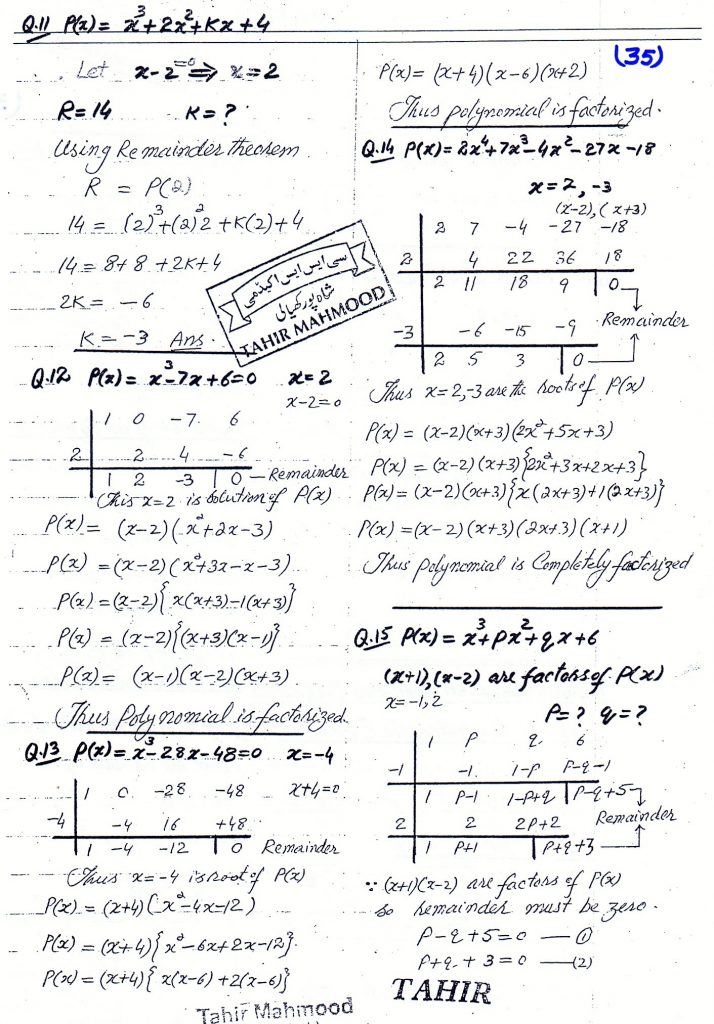 Q.11 P(x) = x³+2x²+Kx+4
Let x-2=0 ⇒ x=2
R=14 K=?
Using Remainder theorem
R = P(2)
14 = (2)³+(2)²2+K(2)+4
14 = 8+8+2K+4
2K = -6
K = -3 Ans.
سی ایس ایس اکیڈمی
شاہ پور کھیالی
TAHIR MAHMOOD
Q.12 P(x) = x³-7x+6=0 x=2
x-2=0
1 0 -7 6
2 2 4 -6
1 2 -3 0 — Remainder
This x=2 is solution of P(x)
P(x) = (x-2)(x²+2x-3)
P(x) = (x-2)(x²+3x-x-3)
P(x) = (x-2){x(x+3)-1(x+3)}
P(x) = (x-2){(x+3)(x-1)}
P(x) = (x-1)(x-2)(x+3)
Thus Polynomial is factorized.
Q.13 P(x) = x³-28x-48=0 x=-4
1 0 -28 -48 x+4=0
-4 -4 16 +48
1 -4 -12 0 Remainder
Thus x=-4 is root of P(x)
P(x) = (x+4)(x²-4x-12)
P(x) = (x+4){x²-6x+2x-12}
P(x) = (x+4){x(x-6)+2(x-6)}
Tahir Mahmood
(35)
P(x) = (x+4)(x-6)(x+2)
Thus polynomial is factorized.
Q.14 P(x) = 2x⁴+7x³-4x²-27x-18
x=2,-3
(x-2),(x+3)
2 7 -4 -27 -18
2 4 22 36 18
2 11 18 9 0
Remainder
-3 -6 -15 -9
2 5 3 0
Thus x=2,-3 are the roots of P(x)
P(x) = (x-2)(x+3)(2x²+5x+3)
P(x) = (x-2)(x+3){2x²+3x+2x+3}
P(x) = (x-2)(x+3){x(2x+3)+1(2x+3)}
P(x) = (x-2)(x+3)(2x+3)(x+1)
Thus polynomial is Completely factorized
Q.15 P(x) = x³+Px²+qx+6
(x+1),(x-2) are factors of P(x)
x=-1,2
P=? q=?
1 P q 6
-1 -1 1-P P-q-1
1 P-1 1-P+q P-q+5
Remainder
2 2 2P+2
1 P+1 P+q+3
∵ (x+1)(x-2) are factors of P(x)
so remainder must be zero.
P-q+5=0 — ①
P+q+3=0 — (2)
TAHIR